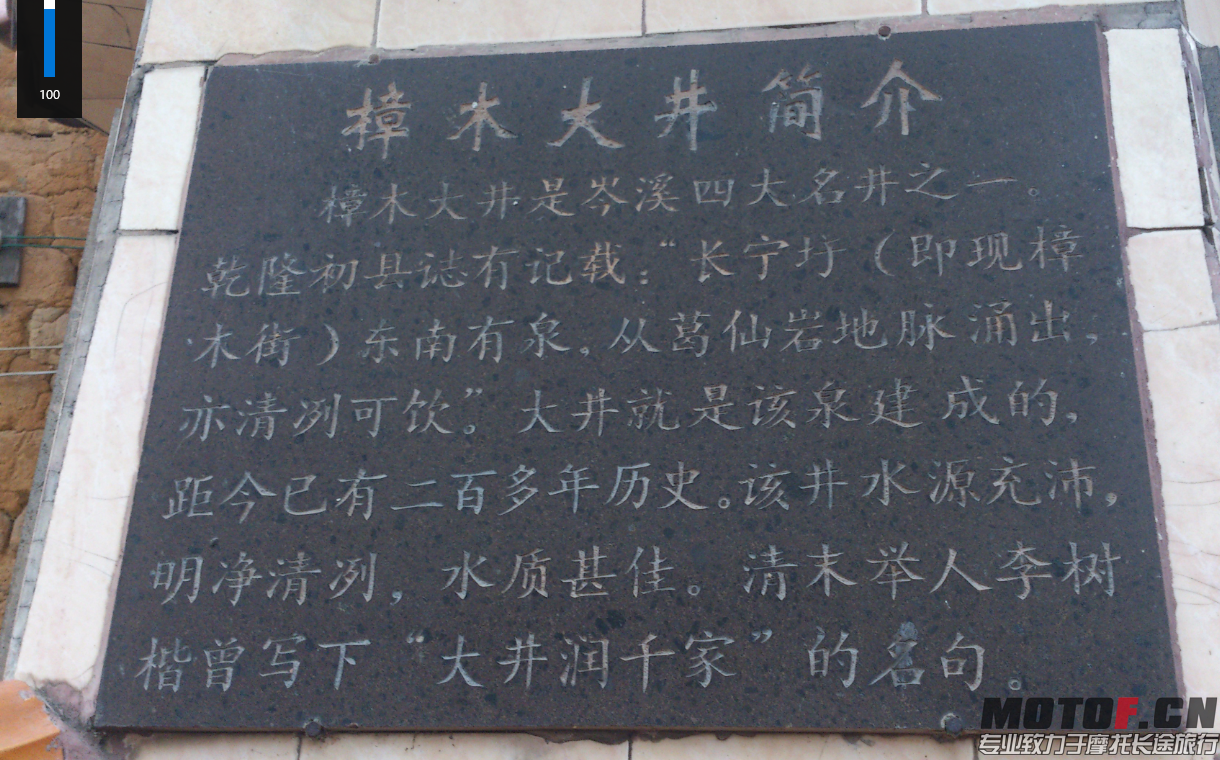 100
樟木大井简介
樟木大井是岑溪四大名井之一。
乾隆初县誌有记载：“长宁圩（即现樟
木街）东南有泉。从葛仙岩地脉涌出，
亦清冽可饮”。大井就是该泉建成的，
距今已有二百多年历史。该井水源充沛，
明净清冽，水质甚佳。清末举人李树
楷曾写下“大井润千家”的名句。
MOTOF.CN
专业致力于摩托长途旅行